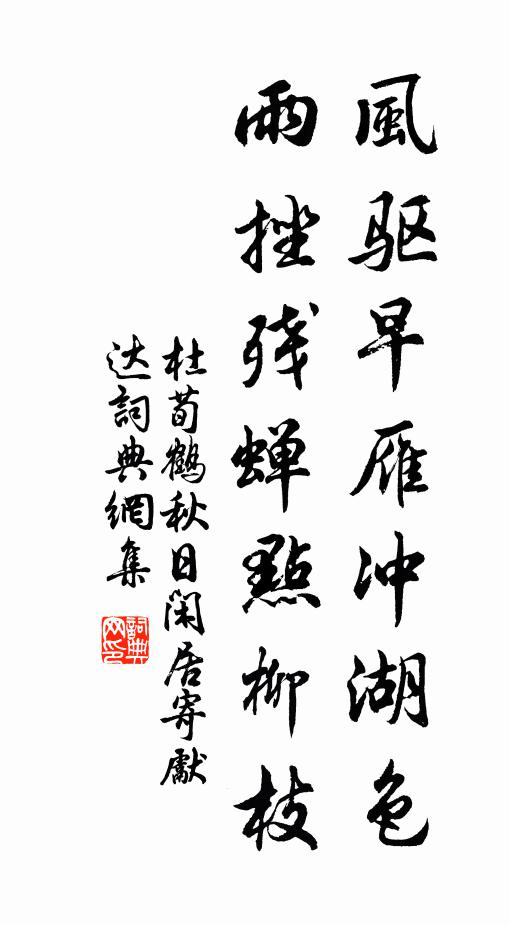 風驱早雁冲湖色
雨挫残蝉點柳枝
杜荀鶴秋日閑居寄獻
达詞典網集
詞典
网印